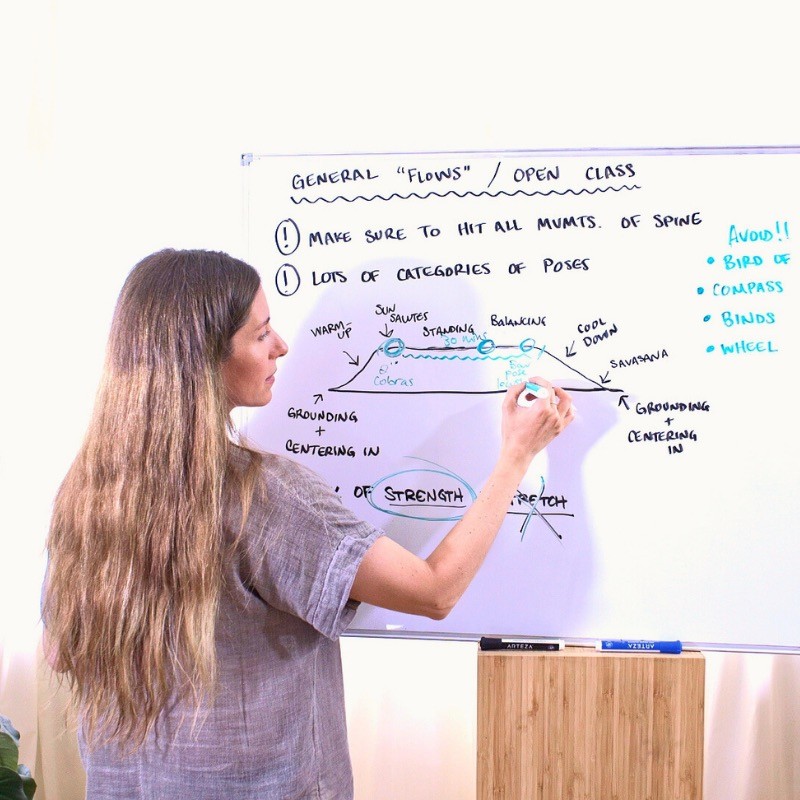 GENERAL "FLOWS" / OPEN CLASS
! MAKE SURE TO HIT ALL MVMTS. OF SPINE
! LOTS OF CATEGORIES OF POSES
AVOID!!
• BIRD OF
• COMPASS
• BINDS
• WHEEL
WARM-
UP
SUN
SALUTES
STANDING
30 mins
BALANCING
COOL
DOWN
SAVASANA
2
Cobras
Bow
pose
GROUNDING
+
CENTERING IN
GROUNDING
+
CENTERING
IN
OF STRENGTH
ARTEZA
ARTEZA